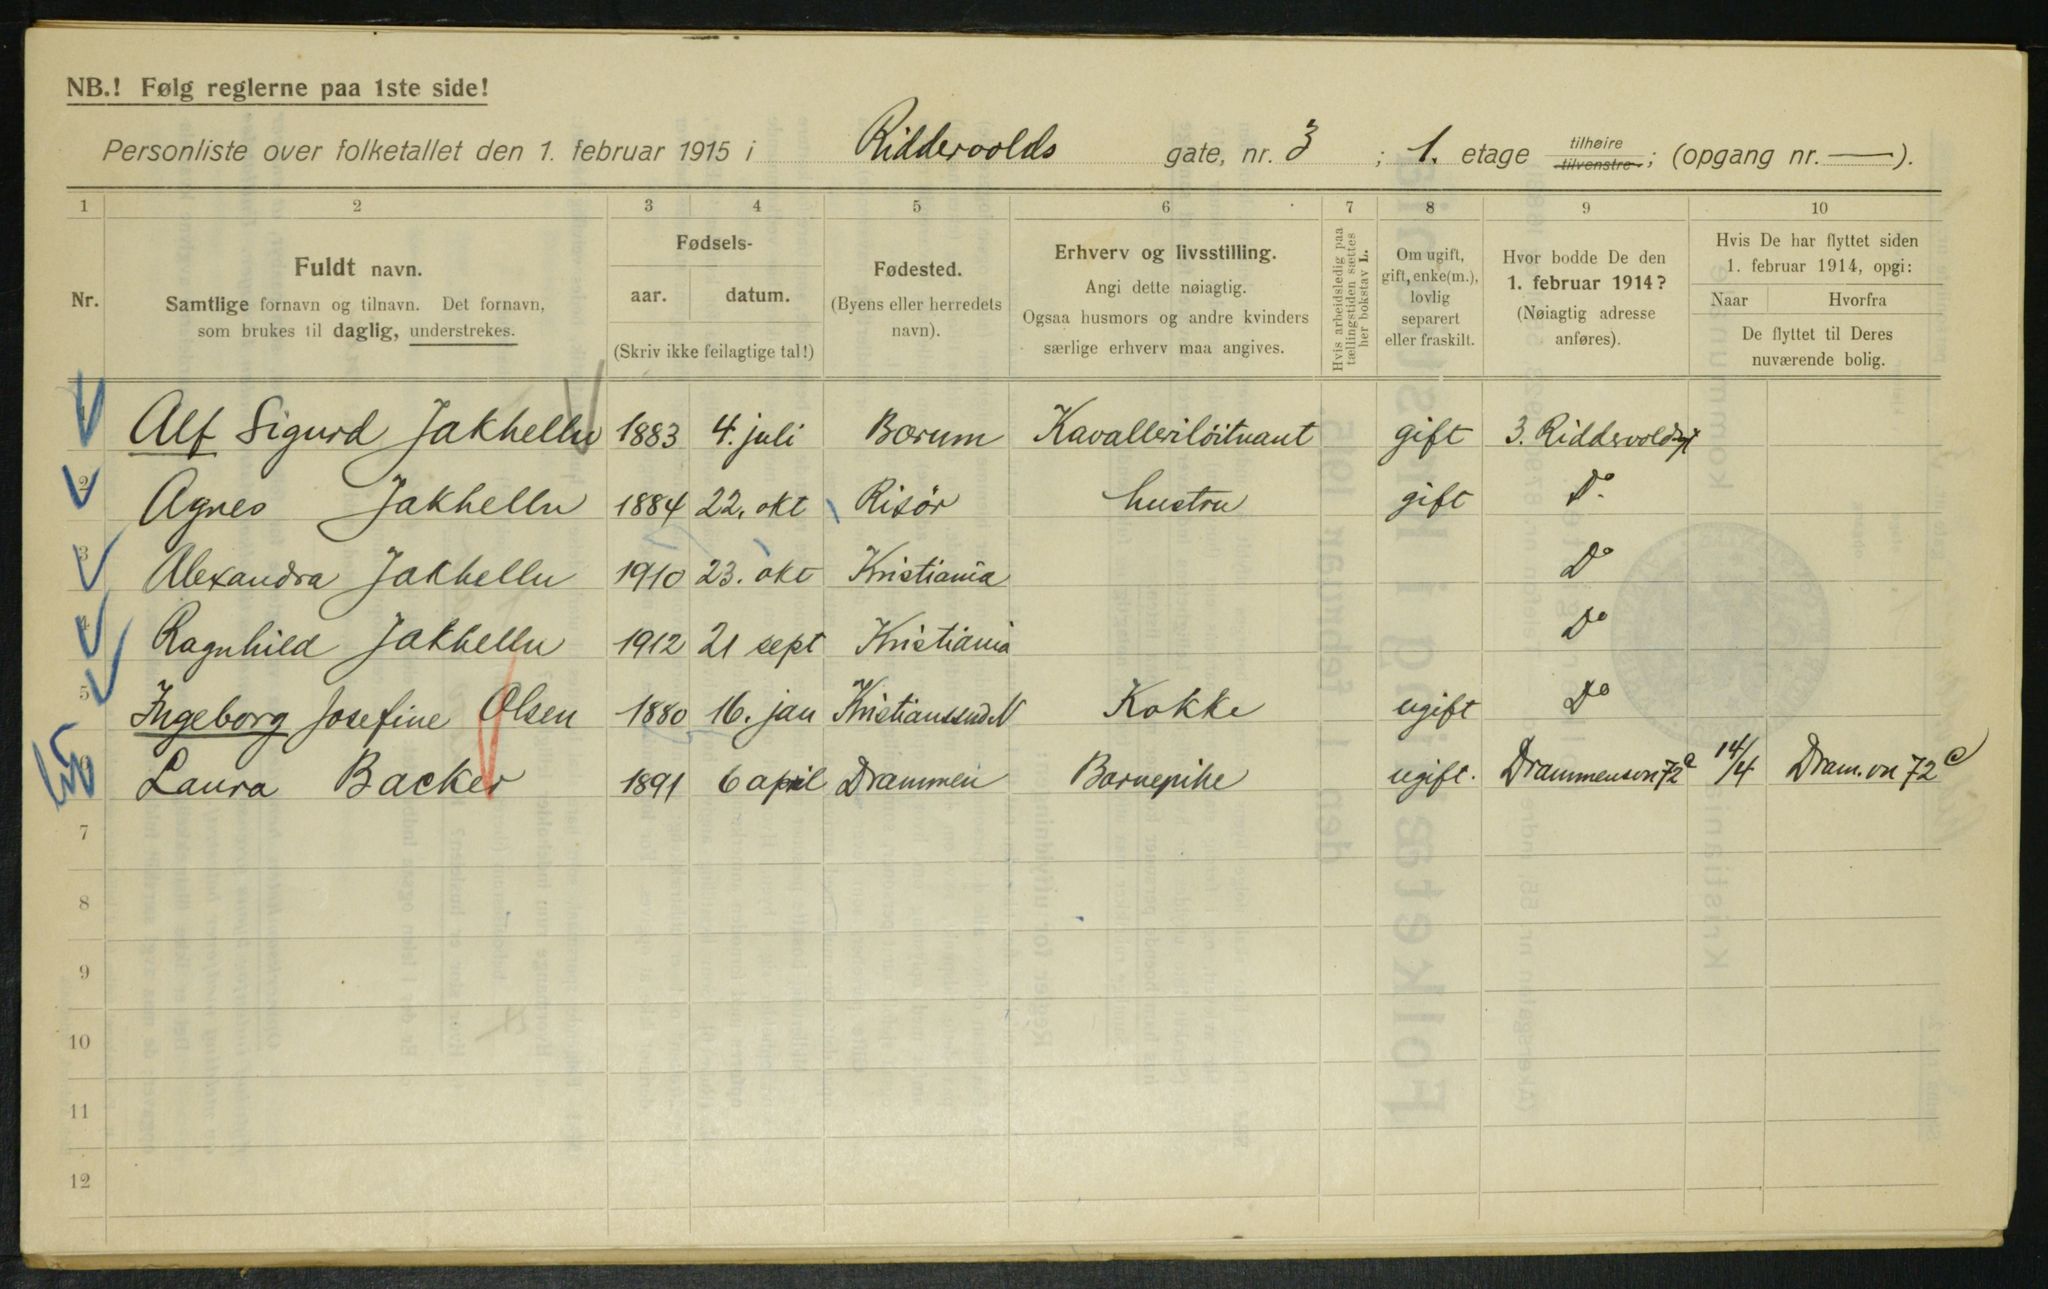 NB.! Følg reglerne paa 1ste side!
Personliste over folketallet den 1. februar 1915 i Riddervolds gate, nr. 3 ; 1. etage tilhøire tilvenstre ; (opgang nr. — ).
1 2 3 4 5 6 7 8 9 10
Nr.
Fuldt navn.
Samtlige fornavn og tilnavn. Det fornavn,
som brukes til daglig, understrekes.
Fødsels-
aar. datum.
(Skriv ikke feilagtige tal!)
Fødested.
(Byens eller herredets
navn).
Erhverv og livsstilling.
Angi dette nøiagtig.
Ogsaa husmors og andre kvinders
særlige erhverv maa angives.
Hvis arbeidsledig paa
tællingstiden sættes
her bokstav L.
Om ugift,
gift, enke(m.),
lovlig
separert
eller fraskilt.
Hvor bodde De den
1. februar 1914?
(Nøiagtig adresse
anføres).
Hvis De har flyttet siden
1. februar 1914, opgi:
Naar Hvorfra
De flyttet til Deres
nuværende bolig.
1 Alf Sigurd Jakhelln 1883 4. juli Bærum Kavalleriløitnant gift 3. Riddervoldsgt
2 Agnes Jakhelln 1884 22. okt Risør hustru gift Do.
3 Alexandra Jakhelln 1910 23. okt Kristiania Do
4 Ragnhild Jakhelln 1912 21 sept Kristiania Do
5 Ingeborg Josefine Olsen 1880 16. jan Kristianssund N Kokke ugift Do
6 Laura Backer 1891 6 april Drammen Barnepike ugift. Drammensvn 72c 14/4 Dram.vn 72c
7
8
9
10
11
12